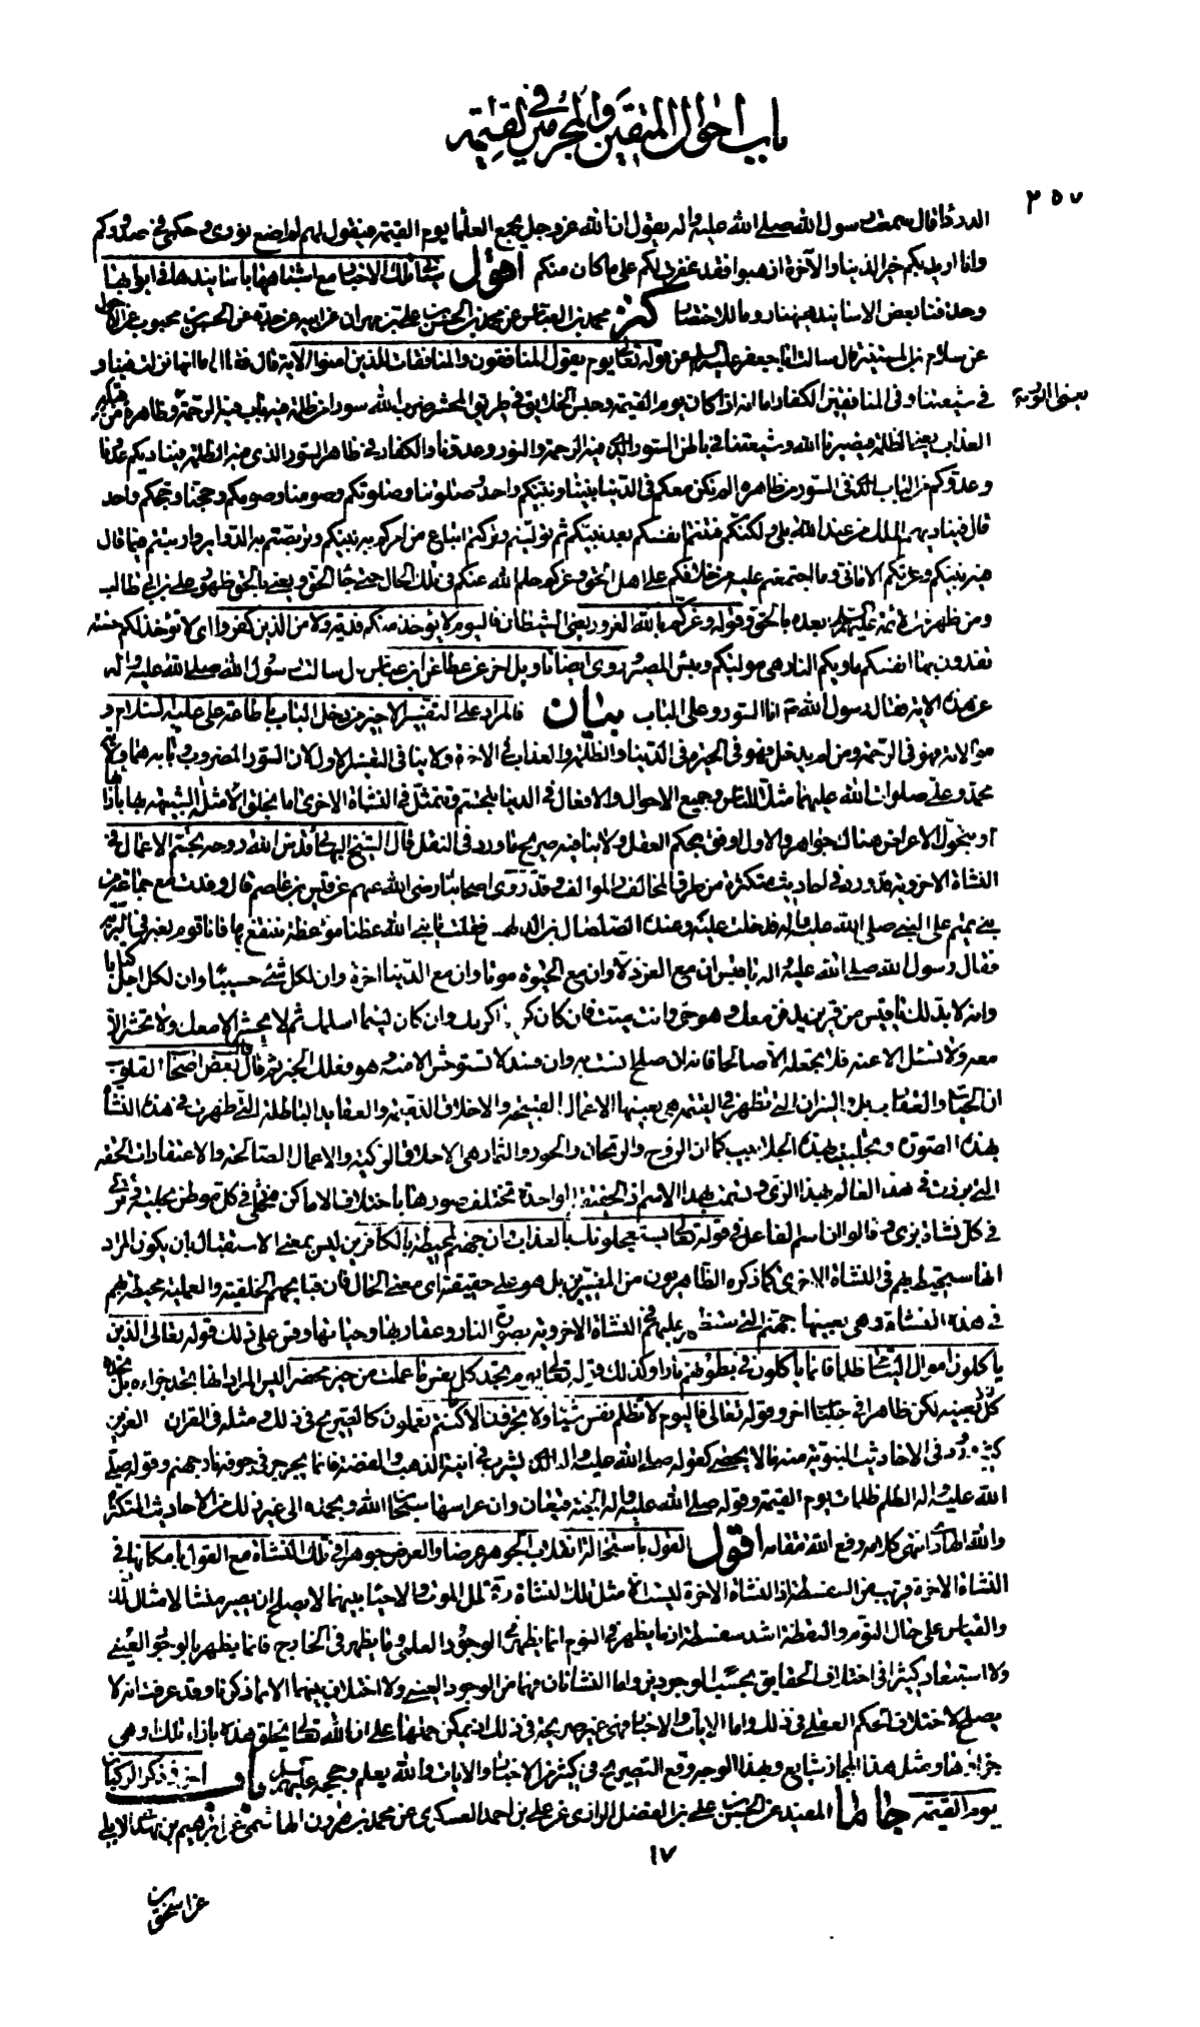 باب احوال المتقين والمجرمين في القيمة
٢٥٧
الدرداء قال سمعت رسول الله صلى الله عليه واله يقول ان الله عز وجل يجمع العلماء يوم القيمة فيقول لهم لم اضع نوري و حكمي في صدوركم
وانا اريد بكم خير الدنيا والآخرة اذهبوا فقد غفرت لكم على ما كان منكم اقول ستأتي تلك الاخبار مع اشباهها باسانيدها في ابوابها
وحذفنا بعض الاسانيد ههنا روما للاختصار كنز محمد بن العباس عن محمد بن الحسن بن علي بن مهران عن ابيه عن جده عن الحسن بن محبوب عن الاحول
عن سلام بن المستنير قال سالت ابا جعفر عليه السلام عن قوله تعالى يوم يقول المنافقون والمنافقات للذين امنوا الاية قال فقال اما انها نزلت فينا و
في شيعتنا وفي المنافقين الكفار اما انه اذا كان يوم القيمة وحبس الخلائق في طريق المحشر ضرب الله سورا من ظلمة فيه باب فيه الرحمة وظاهره من قبله
العذاب يعني الظلمة فيصيرنا الله وشيعتنا في باطن السور الذي فيه الرحمة والنور وعدونا والكفار في ظاهر السور الذي فيه الظلمة فيناديكم عدونا
وعدوكم من الباب الذي في السور من ظاهره الم نكن معكم في الدنيا نبينا ونبيكم واحد وصلوتنا وصلوتكم وصومنا وصومكم وحجنا وحجكم واحد
قال فيناديهم الملك من عند الله بلى ولكنكم فتنتم انفسكم بعد نبيكم ثم توليتم وتركتم اتباع من امركم به نبيكم وتربصتم به الدواير وارتبتم فيما قال
فيه نبيكم وغرتكم الاماني وما اجتمعتم عليه من خلافكم على اهل الحق وغركم حلم الله عنكم في تلك الحال حتى جاء الحق ويعني بالحق ظهور علي بن ابي طالب
ومن ظهر من الائمة عليهم السلام بعده بالحق وقوله وغركم بالله الغرور يعني الشيطان فاليوم لا يؤخذ منكم فدية ولا من الذين كفروا اي لا توخذ لكم حسنة
تفدون بها انفسكم ماويكم النار هي موليكم وبئس المصير وروى ايضا تاويل اخر عن عطا عن ابن عباس قال سالت رسول الله صلى الله عليه واله
عن هذه الاية فقال رسول الله ص انا السور وعلي الباب بيان فالمراد على التفسير الاخير من دخل الباب باطاعة علي عليه السلام و
موالاته فهو في الرحمة ومن لم يدخل فهو في الحيرة في الدنيا والظلمة والعذاب في الاخرة ولا ينافي التفسير الاول لان السور المضروب وبابه هما ولاية
محمد وعلي صلوات الله عليهما مثل للناس وجميع الاحوال والافعال في الدنيا تتجسم وتتمثل في النشاة الاخرى اما بخلق الامثال الشبيهة بها بازائها
او بتحول الاعراض هناك جواهر والاول اوفق بحكم العقل ولا ينافيه صريح ما ورد في النقل قال الشيخ البهائي قدس الله روحه تجسم الاعمال في
النشاة الاخروية قد ورد في احاديث متكثرة من طرق المخالف والموالف وقد روى اصحابنا رضي الله عنهم عن قيس بن عاصم قال وفدت مع جماعة من
بني تميم على النبي صلى الله عليه واله فدخلت عليه وعنده الصلصال بن الدلهمس فقلت يا نبي الله عظنا موعظة ننتفع بها فانا قوم نعبر في البرية
فقال رسول الله صلى الله عليه واله يا قيس ان مع العز ذلا وان مع الحيوة موتا وان مع الدنيا اخرة وان لكل شيء حسيبا وان لكل اجل كتابا
وانه لابد لك يا قيس من قرين يدفن معك وهو حي وانت ميت فان كان كريما اكرمك وان كان لئيما اسلمك ثم لا يحشر الا معك ولا تحشر الا
معه ولا تسئل الا عنه فلا تجعله الا صالحا فانه ان صلح انست به وان فسد لا تستوحش الا منه وهو فعلك الخبر ثم قال بعض اصحاب القلوب
ان الحيات والعقارب بل والنيران التي تظهر في القيمة هي بعينها الاعمال القبيحة والاخلاق الذميمة والعقايد الباطلة التي ظهرت في هذه النشاة
بهذه الصورة وتجلببت بهذه الجلابيب كما ان الروح والريحان والحور والثمار هي الاخلاق الزكية والاعمال الصالحة والاعتقادات الحقة
التي برزت في هذا العالم بهذا الزي وتسمت بهذا الاسم اذ الحقيقة الواحدة تختلف صورها باختلاف الاماكن فتتحلى في كل موطن بحلية وتزيى
في كل نشاة بزي وقالوا ان اسم الفاعل في قوله تعالى يستعجلونك بالعذاب وان جهنم لمحيطة بالكافرين ليس بمعنى الاستقبال بان يكون المراد
انها ستحيط بهم في النشاة الاخرى كما ذكره الظاهريون من المفسرين بل هو على حقيقته اي معنى الحال فان قبايحهم الخلقية والعملية محيطة بهم
في هذه النشاة وهي بعينها جهنم التي ستظهر عليهم في النشاة الاخروية بصورة النار وعقاربها وحياتها وقس على ذلك قوله تعالى الذين
ياكلون اموال اليتامى ظلما انما ياكلون في بطونهم نارا وكذلك قوله تعالى يوم تجد كل نفس ما عملت من خير محضرا ليس المراد انها تجد جزاءه بل تجده
بعينه لكن ظاهرا في جلباب اخر وقوله تعالى فاليوم لا تظلم نفس شيئا ولا تجزون الا ما كنتم تعملون كالصريح في ذلك ومثله في القران العزيز
كثير وورد في الاحاديث النبوية منه ما لا يحصى كقوله صلى الله عليه واله الذي يشرب في انية الذهب والفضة فانما يجرجر في جوفه نار جهنم وقوله صلى
الله عليه واله الظلم ظلمات يوم القيمة وقوله صلى الله عليه واله الجنة قيعان وان غراسها سبحان الله وبحمده الى غير ذلك من الاحاديث المتكثرة
والله الهادي انتهى كلامه رفع الله مقامه اقول القول باستحالة انقلاب الجوهر عرضا والعرض جوهرا في تلك النشاة مع القول بامكانها في
النشاة الاخرة قريب من السفسطة اذ النشاة الاخرة ليست الا مثل تلك النشاة وتخلل الموت والاحياء بينهما لا يصلح ان يصير منشأ لامثال ذلك
والقياس على حال النوم واليقظة اشد سفسطة اذ ما يظهر في النوم انما يظهر في الوجود العلمي وما يظهر في الخارج فانما يظهر بالوجود العيني
ولا استبعاد كثيرا في اختلاف الحقايق بحسب الوجودين واما النشاتان فهما من الوجود العيني ولا اختلاف بينهما الا بما ذكرنا وقد عرفت انه لا
يصلح لاختلاف الحكم العقلي في ذلك واما الايات والاخبار فهي غير صريحة في ذلك اذ يمكن حملها على ان الله تعالى يخلق هذه بازاء تلك او هي
جزاؤها ومثل هذا المجاز شايع وبهذا الوجه وقع التصريح في كثير من الاخبار والايات والله يعلم وحججه عليهم السلام باب اخر في ذكر الركبان
يوم القيمة جا ما المفيد عن الحسن بن علي بن الفضل الرازي عن علي بن احمد العسكري عن محمد بن هرون الهاشمي عن ابرهيم بن مهدي الابلي
١٧
عن اسحق بن